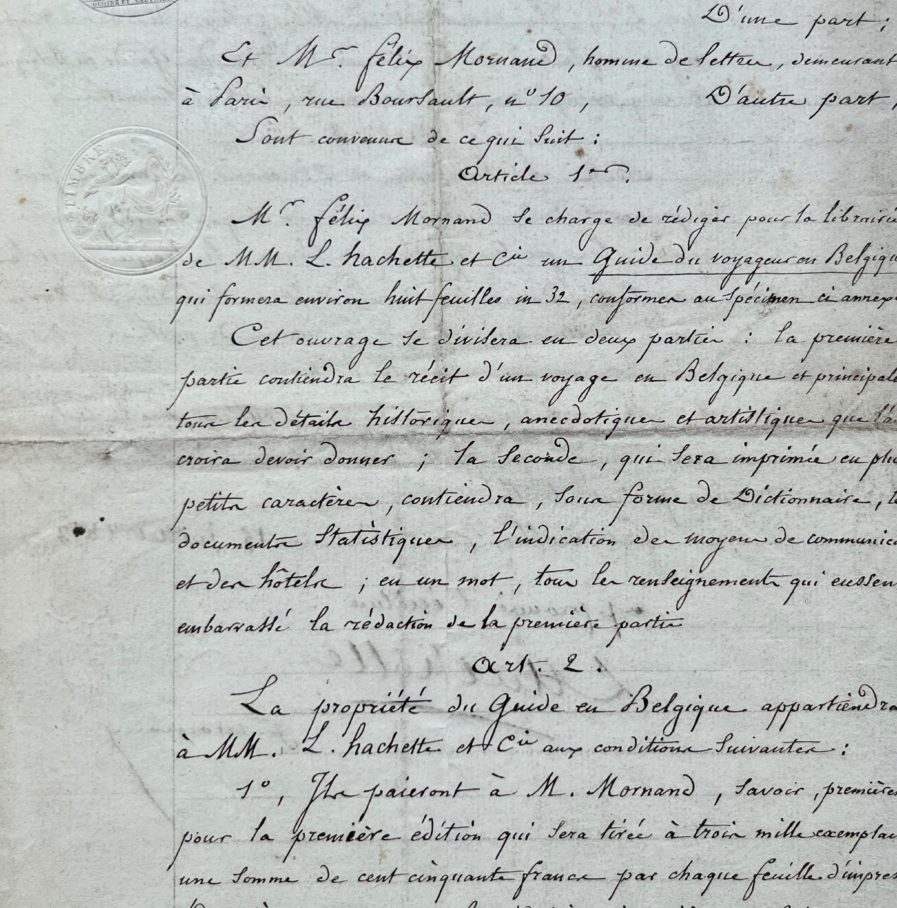 D'une part;
Et Mr. félix Mornand, homme de lettres, demeurant
à Paris, rue Boursault, no 10, D'autre part,
Sont convenus de ce qui suit :
Article 1er.
TIMBRE
Mr félix Mornand se charge de rédiger pour la librairie
de MM. L. hachette et Cie un Guide du voyageur en Belgique
qui formera environ huit feuilles in 32, conformes au spécimen ci annexé
Cet ouvrage se divisera en deux parties : la première
partie contiendra le récit d'un voyage en Belgique et principale
tous les détails historiques, anecdotiques et artistiques que l'au
croira devoir donner ; la seconde, qui sera imprimée en plus
petits caractères, contiendra, sous forme de Dictionnaire, le
documents statistiques, l'indication des moyens de communica
et des hôtels ; en un mot, tous les renseignements qui eussen
embarrassé la rédaction de la première partie
Art. 2.
La propriété du Guide en Belgique appartiendra
à MM. L. hachette et Cie aux conditions suivantes :
1o, Ils paieront à M. Mornand, savoir, première
pour la première édition qui sera tirée à trois mille exemplai
une somme de cent cinquante francs par chaque feuille d'impres